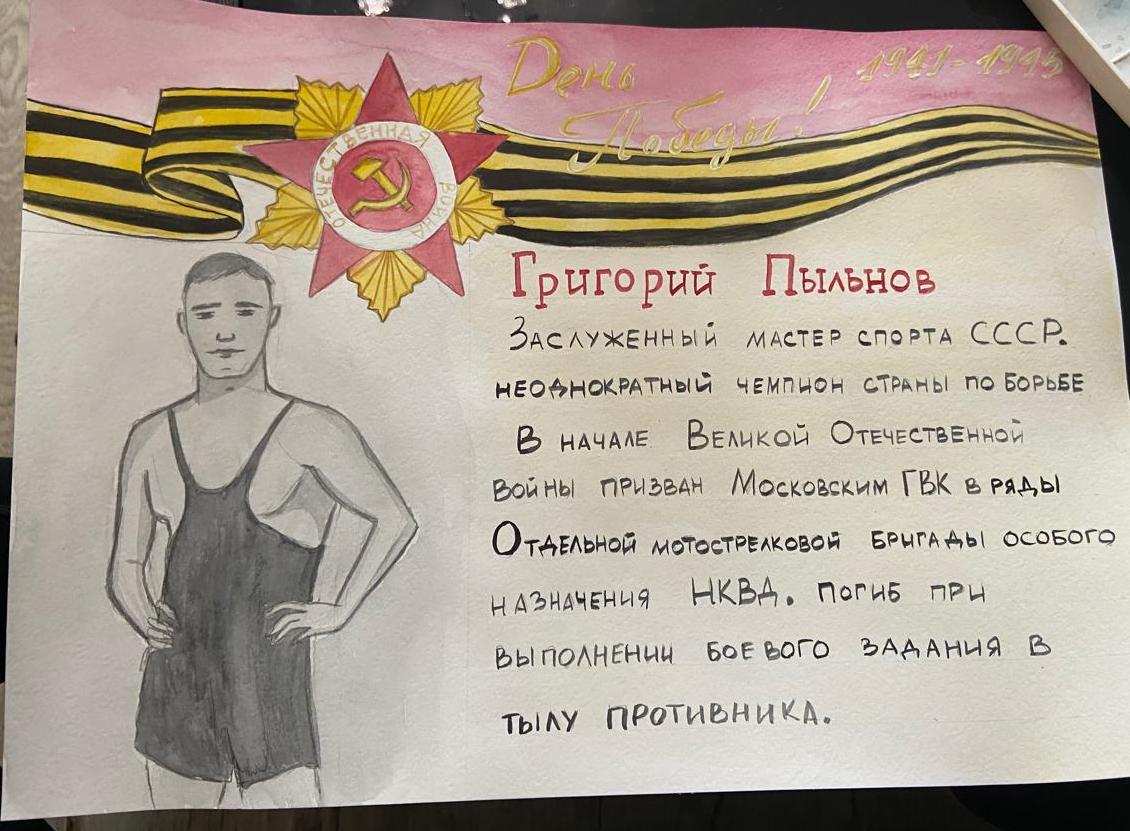 День
Победы!
1941-1945
ОТЕЧЕСТВЕННАЯ
ВОЙНА
Григорий Пыльнов
Заслуженный мастер спорта СССР.
неоднократный чемпион страны по борьбе
В начале Великой Отечественной
войны призван Московским ГВК в ряды
Отдельной мотострелковой бригады особого
назначения НКВД. погиб при
выполнении боевого задания в
тылу противника.